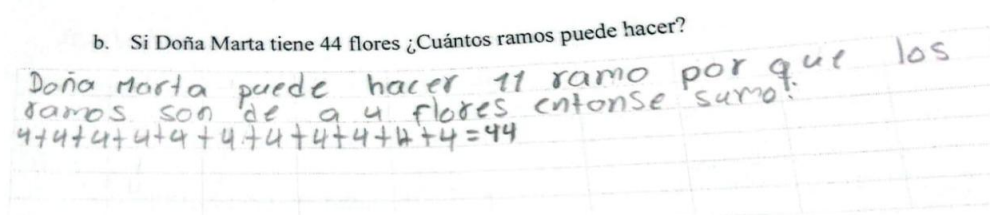 b. Si Doña Marta tiene 44 flores ¿Cuántos ramos puede hacer?
Doña Marta puede hacer 11 ramo por que los
ramos son de a 4 flores entonse sumo:
4+4+4+4+4+4+4+4+4+4+4=44